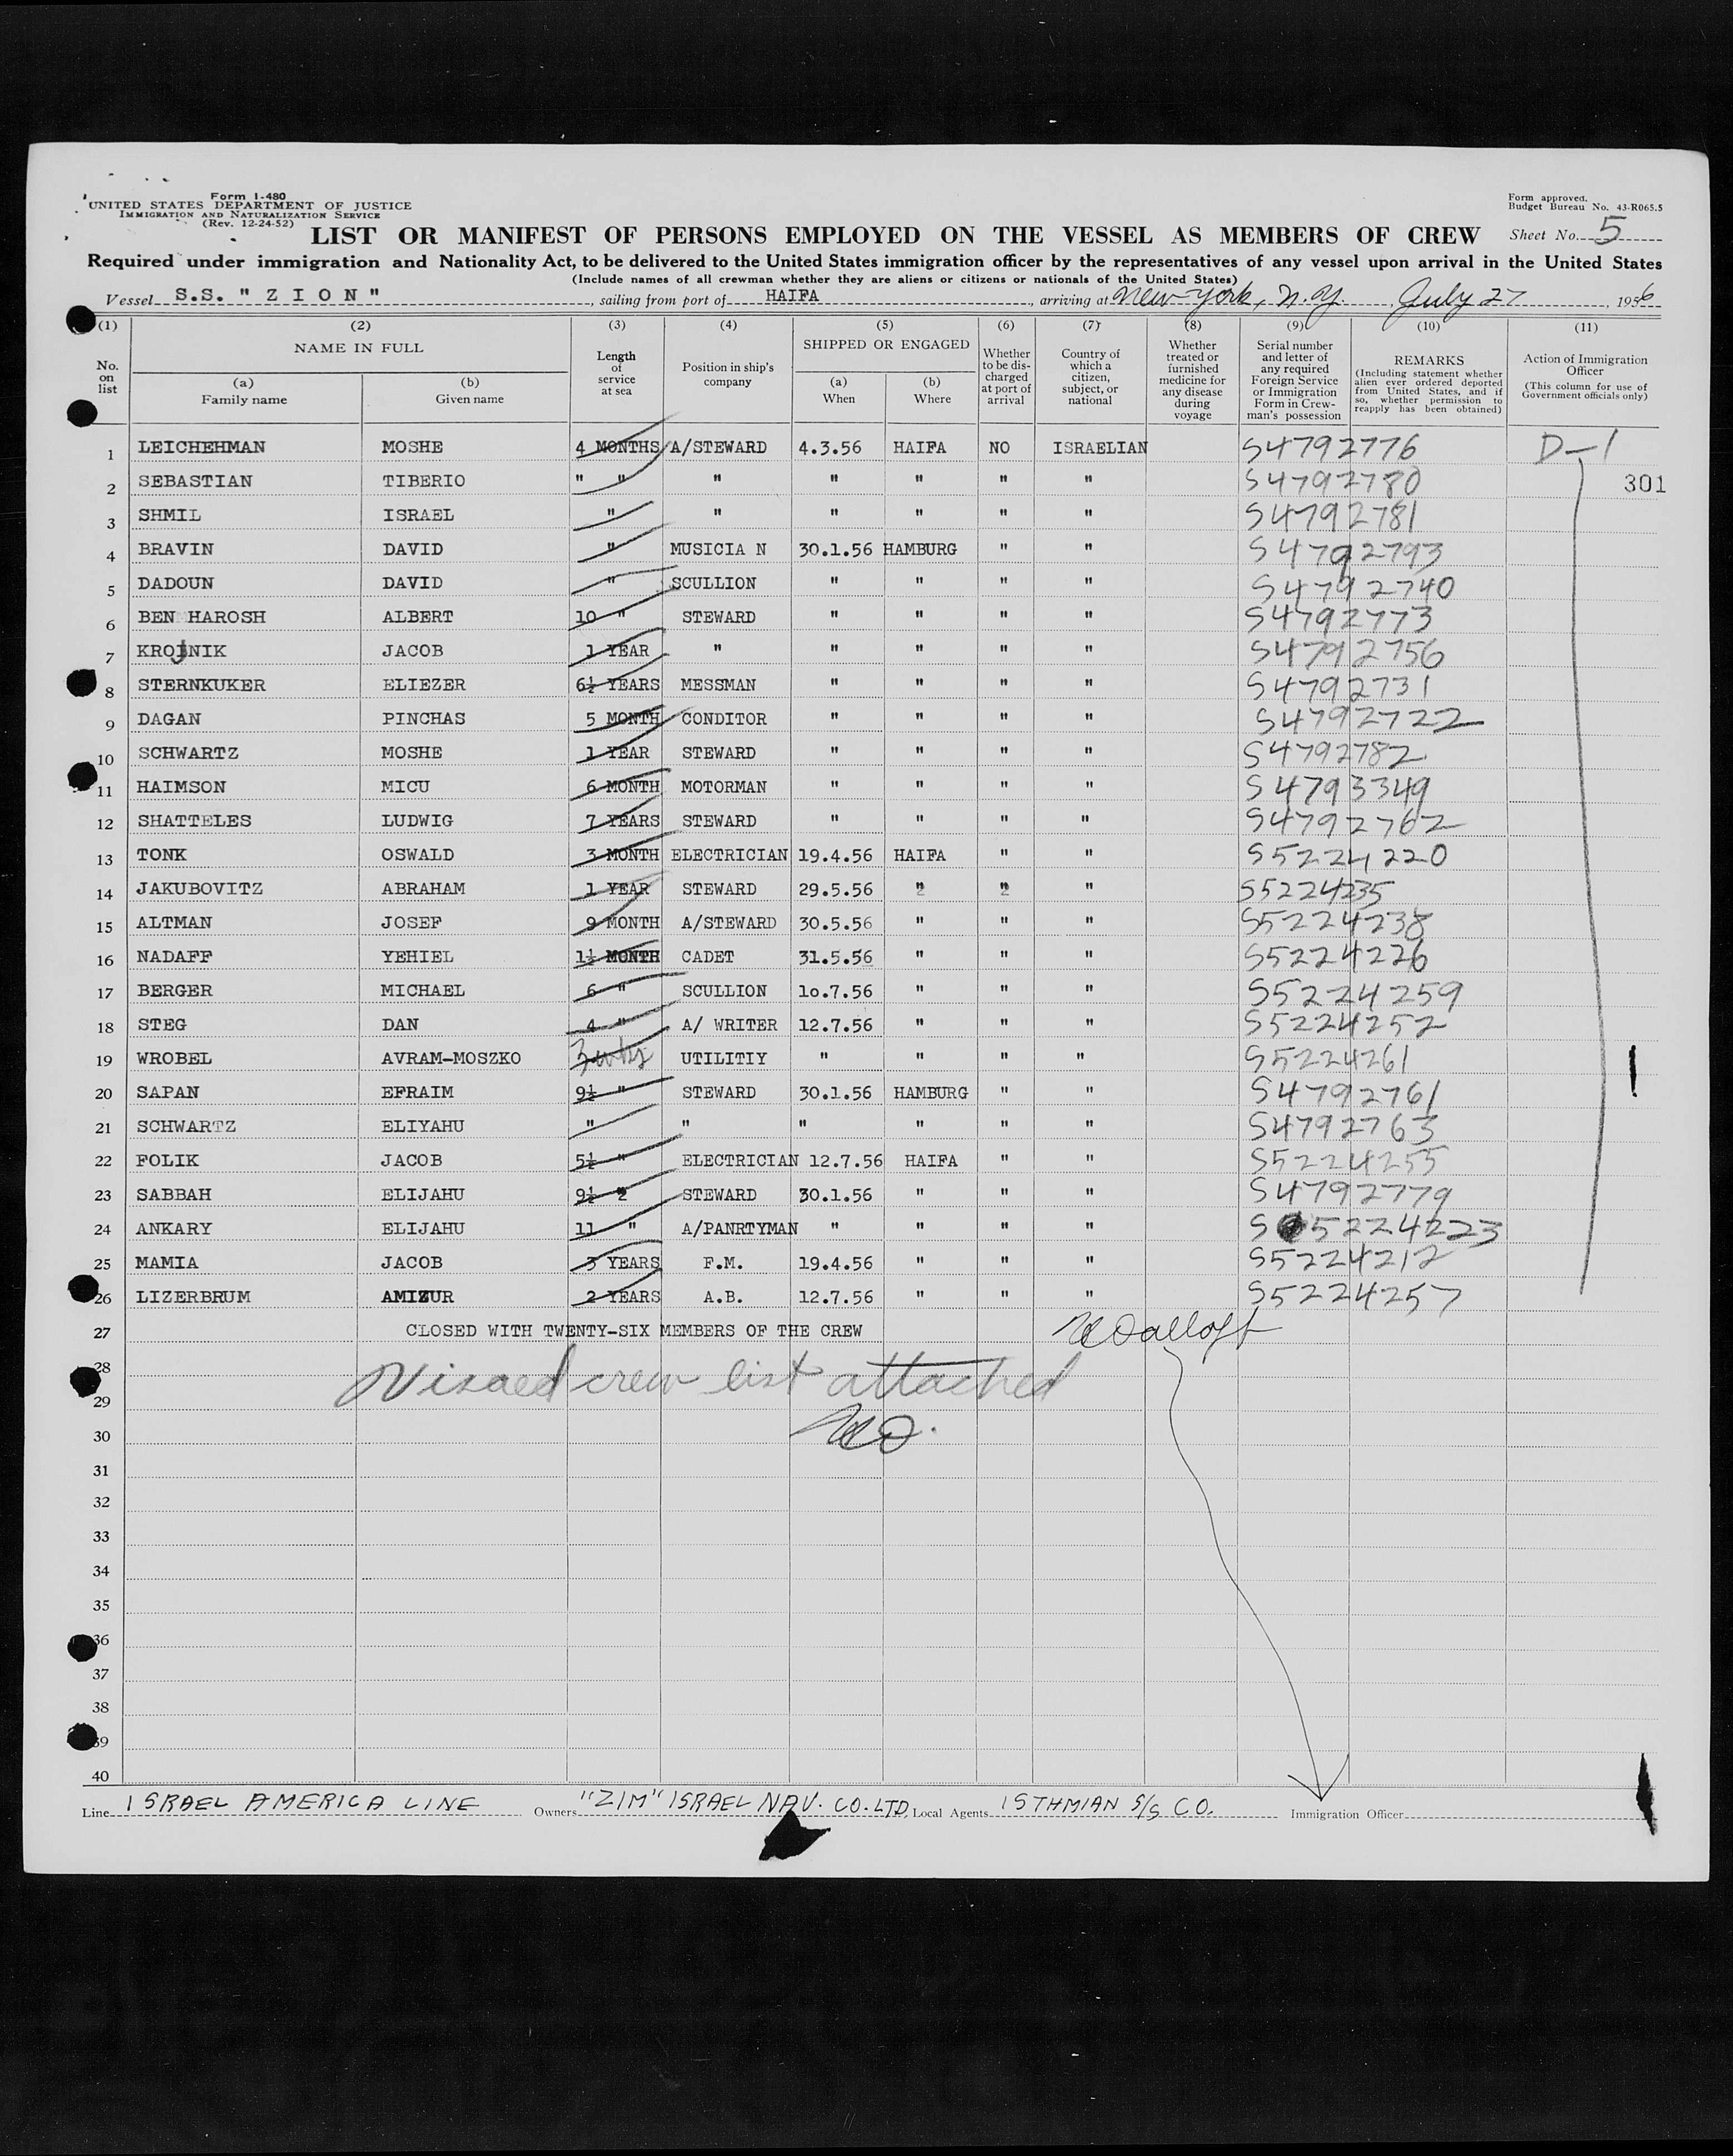 Form I-480
UNITED STATES DEPARTMENT OF JUSTICE
IMMIGRATION AND NATURALIZATION SERVICE
(Rev. 12-24-52)
Form approved.
Budget Bureau No. 43-R065.5
LIST OR MANIFEST OF PERSONS EMPLOYED ON THE VESSEL AS MEMBERS OF CREW
Sheet No. 5
Required under immigration and Nationality Act, to be delivered to the United States immigration officer by the representatives of any vessel upon arrival in the United States
(Include names of all crewman whether they are aliens or citizens or nationals of the United States)
Vessel S.S. " Z I O N ", sailing from port of HAIFA, arriving at New York, N.Y. July 27, 1956
(1) (2) (3) (4) (5) (6) (7) (8) (9) (10) (11)
No. on list
NAME IN FULL
(a) Family name
(b) Given name
Length of service at sea
Position in ship's company
SHIPPED OR ENGAGED
(a) When
(b) Where
Whether to be discharged at port of arrival
Country of which a citizen, subject, or national
Whether treated or furnished medicine for any disease during voyage
Serial number and letter of any required Foreign Service or Immigration Form in Crewman's possession
REMARKS
(Including statement whether alien ever ordered deported from United States, and if so, whether permission to reapply has been obtained)
Action of Immigration Officer
(This column for use of Government officials only)
1 LEICHEHMAN MOSHE 4 MONTHS A/STEWARD 4.3.56 HAIFA NO ISRAELIAN S4792776 D-1
2 SEBASTIAN TIBERIO " " " " " " " S4792780 301
3 SHMIL ISRAEL " " " " " " S4792781
4 BRAVIN DAVID " MUSICIA N 30.1.56 HAMBURG " " S4792793
5 DADOUN DAVID " SCULLION " " " " S4792740
6 BEN HAROSH ALBERT 10 " STEWARD " " " " S4792773
7 KROJNIK JACOB 1 YEAR " " " " " S4792756
8 STERNKUKER ELIEZER 6½ YEARS MESSMAN " " " " S4792731
9 DAGAN PINCHAS 5 MONTH CONDITOR " " " " S4792722
10 SCHWARTZ MOSHE 1 YEAR STEWARD " " " " S4792782
11 HAIMSON MICU 6 MONTH MOTORMAN " " " " S4793349
12 SHATTELES LUDWIG 7 YEARS STEWARD " " " " S4792762
13 TONK OSWALD 3 MONTH ELECTRICIAN 19.4.56 HAIFA " " S5224220
14 JAKUBOVITZ ABRAHAM 1 YEAR STEWARD 29.5.56 " " " S5224235
15 ALTMAN JOSEF 9 MONTH A/STEWARD 30.5.56 " " " S5224238
16 NADAFF YEHIEL 1½ MONTH CADET 31.5.56 " " " S5224226
17 BERGER MICHAEL 6 " SCULLION 1o.7.56 " " " S5224259
18 STEG DAN 4 " A/ WRITER 12.7.56 " " " S5224252
19 WROBEL AVRAM-MOSZKO UTILITIY " " " " S5224261
20 SAPAN EFRAIM 9½ " STEWARD 30.1.56 HAMBURG " " S4792761
21 SCHWARTZ ELIYAHU " " " " " " S4792763
22 FOLIK JACOB 5½ " ELECTRICIAN 12.7.56 HAIFA " " S5224255
23 SABBAH ELIJAHU 9½ 2 STEWARD 30.1.56 " " " S4792779
24 ANKARY ELIJAHU 11 " A/PANRTYMAN " " " " S5224223
25 MAMIA JACOB 3 YEARS F.M. 19.4.56 " " " S5224212
26 LIZERBRUM AMIZUR 2 YEARS A.B. 12.7.56 " " " S5224257
27 CLOSED WITH TWENTY-SIX MEMBERS OF THE CREW
28 Visaed crew list attached
29
30
31
32
33
34
35
36
37
38
39
40
Line ISRAEL AMERICA LINE Owners "ZIM" ISRAEL NAV. CO. LTD, Local Agents ISTHMIAN S/S CO. Immigration Officer